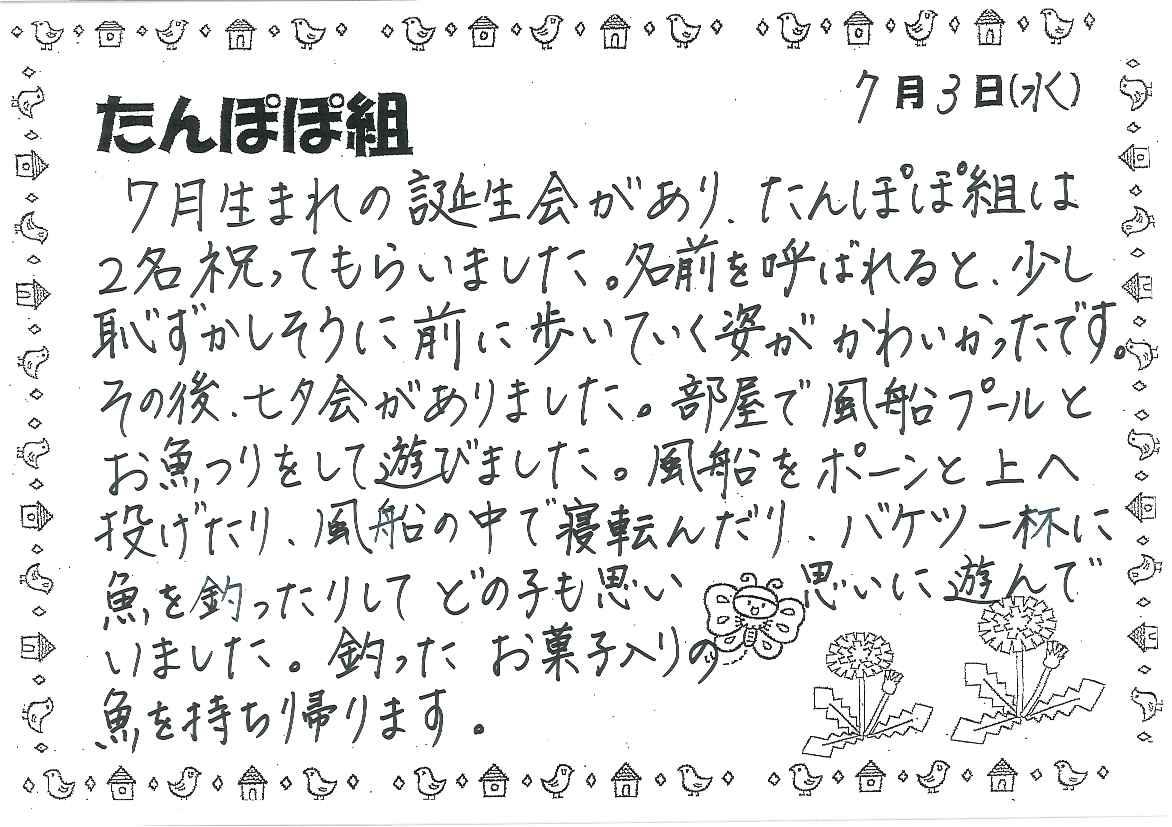 7月3日(水)
たんぽぽ組
7月生まれの誕生会があり、たんぽぽ組は
2名祝ってもらいました。名前を呼ばれると、少し
恥ずかしそうに前に歩いていく姿がかわいかったです。
その後、七夕会がありました。部屋で風船プールと
お魚つりをして遊びました。風船をポーンと上へ
投げたり、風船の中で寝転んだり、バケツ一杯に
魚を釣ったりしてどの子も思い思いに遊んで
いました。釣ったお菓子入りの
魚を持ち帰ります。